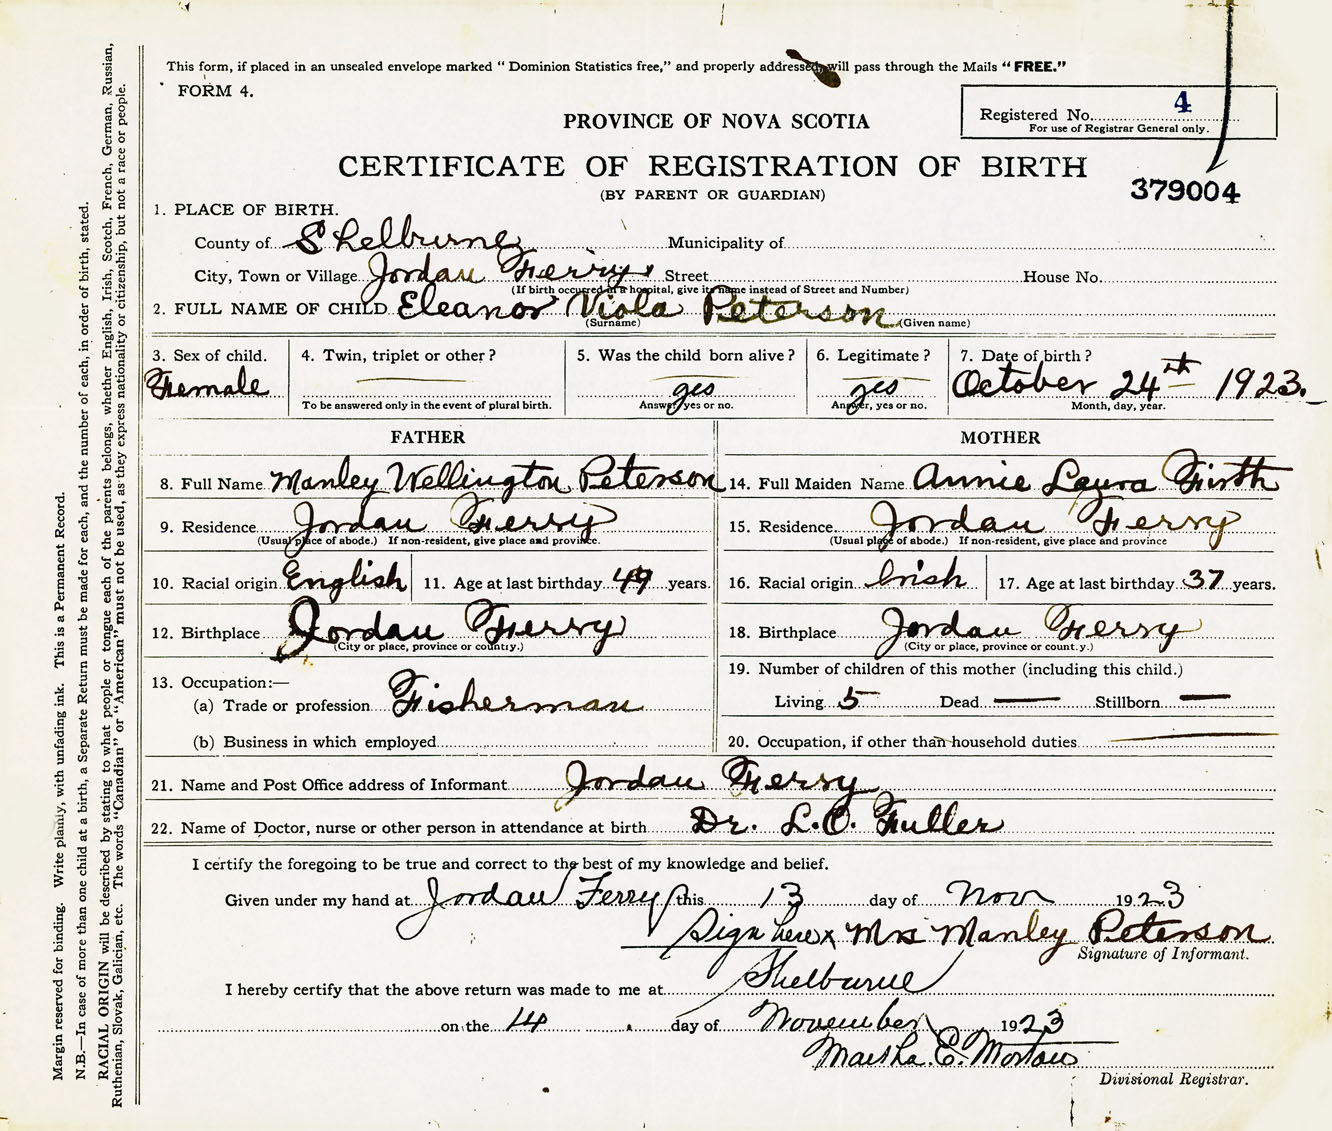 This form, if placed in an unsealed envelope marked "Dominion Statistics free," and properly addressed, will pass through the Mails "FREE."
FORM 4.
Registered No. 4
For use of Registrar General only.
PROVINCE OF NOVA SCOTIA
CERTIFICATE OF REGISTRATION OF BIRTH
379004
(BY PARENT OR GUARDIAN)
1. PLACE OF BIRTH.
County of Shelburne Municipality of
City, Town or Village Jordan Ferry Street House No.
(If birth occurred in a hospital, give its name instead of Street and Number)
2. FULL NAME OF CHILD Eleanor Viola Peterson
(Surname) (Given name)
3. Sex of child. 4. Twin, triplet or other? 5. Was the child born alive? 6. Legitimate? 7. Date of birth?
Female — yes yes October 24th 1923.
To be answered only in the event of plural birth. Answer, yes or no. Answer, yes or no. Month, day, year.
FATHER MOTHER
8. Full Name Manley Wellington Peterson 14. Full Maiden Name Annie Laura Firth
9. Residence Jordan Ferry 15. Residence Jordan Ferry
(Usual place of abode.) If non-resident, give place and province. (Usual place of abode.) If non-resident, give place and province
10. Racial origin English 11. Age at last birthday 49 years. 16. Racial origin Irish 17. Age at last birthday 37 years.
12. Birthplace Jordan Ferry 18. Birthplace Jordan Ferry
(City or place, province or country.) (City or place, province or count.y.)
13. Occupation:— 19. Number of children of this mother (including this child.)
(a) Trade or profession Fisherman Living 5 Dead — Stillborn —
(b) Business in which employed 20. Occupation, if other than household duties —
21. Name and Post Office address of Informant Jordan Ferry
22. Name of Doctor, nurse or other person in attendance at birth Dr. L.O. Fuller
I certify the foregoing to be true and correct to the best of my knowledge and belief.
Given under my hand at Jordan Ferry this 13 day of Nov 1923
Sign here x Mrs Manley Peterson
Signature of Informant.
I hereby certify that the above return was made to me at Shelburne
on the 14 day of November 1923
Martha. E. Mortow
Divisional Registrar.
Margin reserved for binding. Write plainly, with unfading ink. This is a Permanent Record.
N.B.—In case of more than one child at a birth, a Separate Return must be made for each, and the number of each, in order of birth, stated.
RACIAL ORIGIN will be described by stating to what people or tongue each of the parents belongs, whether English, Irish, Scotch, French, German, Russian,
Ruthenian, Slovak, Galician, etc. The words "Canadian" or "American" must not be used, as they express nationality or citizenship, but not a race or people.